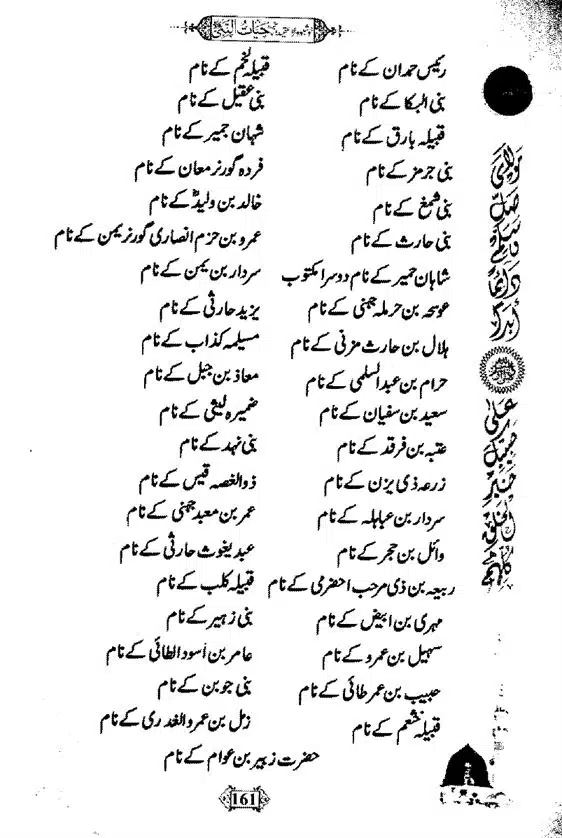 حیات النبی
رئیس حمدان کے نام
بنی البکا کے نام
قبیلہ بارق کے نام
بنی جرمز کے نام
بنی شمغ کے نام
بنی حارث کے نام
شاہان حمیر کے نام دوسرا مکتوب
عوسجہ بن حرملہ جہنی کے نام
ہلال بن حارث مزنی کے نام
حرام بن عبد السلمی کے نام
سعید بن سفیان کے نام
عتبہ بن فرقد کے نام
زرعہ ذی یزن کے نام
سردار بن عباہلہ کے نام
وائل بن حجر کے نام
ربیعہ بن ذی مرحب احضرمی کے نام
مہری بن ابیض کے نام
سہیل بن عمرو کے نام
حبیب بن عمر طائی کے نام
قبیلہ خثعم کے نام
قبیلہ لخم کے نام
بنی عقیل کے نام
شہان حمیر کے نام
فردہ گورنر معان کے نام
خالد بن ولیدؓ کے نام
عمرو بن حزم انصاری گورنر یمن کے نام
سردار بن یمن کے نام
یزید حارثی کے نام
مسیلمہ کذاب کے نام
معاذ بن جبل کے نام
ضمیرہ لیثی کے نام
بنی نہد کے نام
ذوالغصہ قیس کے نام
عمر بن معبد جہنی کے نام
عبد یغوث حارثی کے نام
قبیلہ کلب کے نام
بنی زہیر کے نام
عامر بن اسود الطائی کے نام
بنی جوین کے نام
زمل بن عمرو الغدری کے نام
حضرت زبیر بن عوام کے نام
مولای صل وسلم دائما ابدا
علی حبیبک خیر الخلق کلهم
161